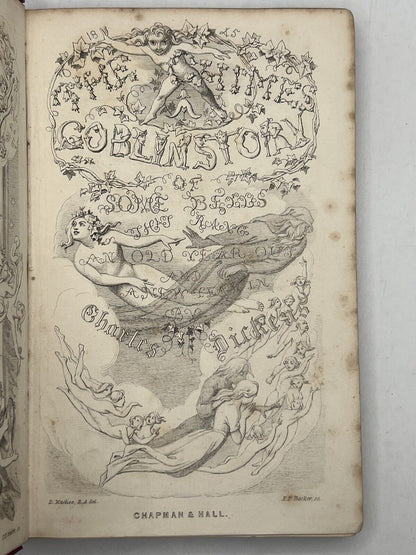 18 45
THE CHIMES
A
GOBLIN STORY
OF
SOME BELLS
THAT RANG
AN OLD YEAR OUT
AND
A NEW YEAR IN
BY
Charles Dickens
D. Maclise, R.A. del.
F. P. Becker, sc.
CHAPMAN & HALL.